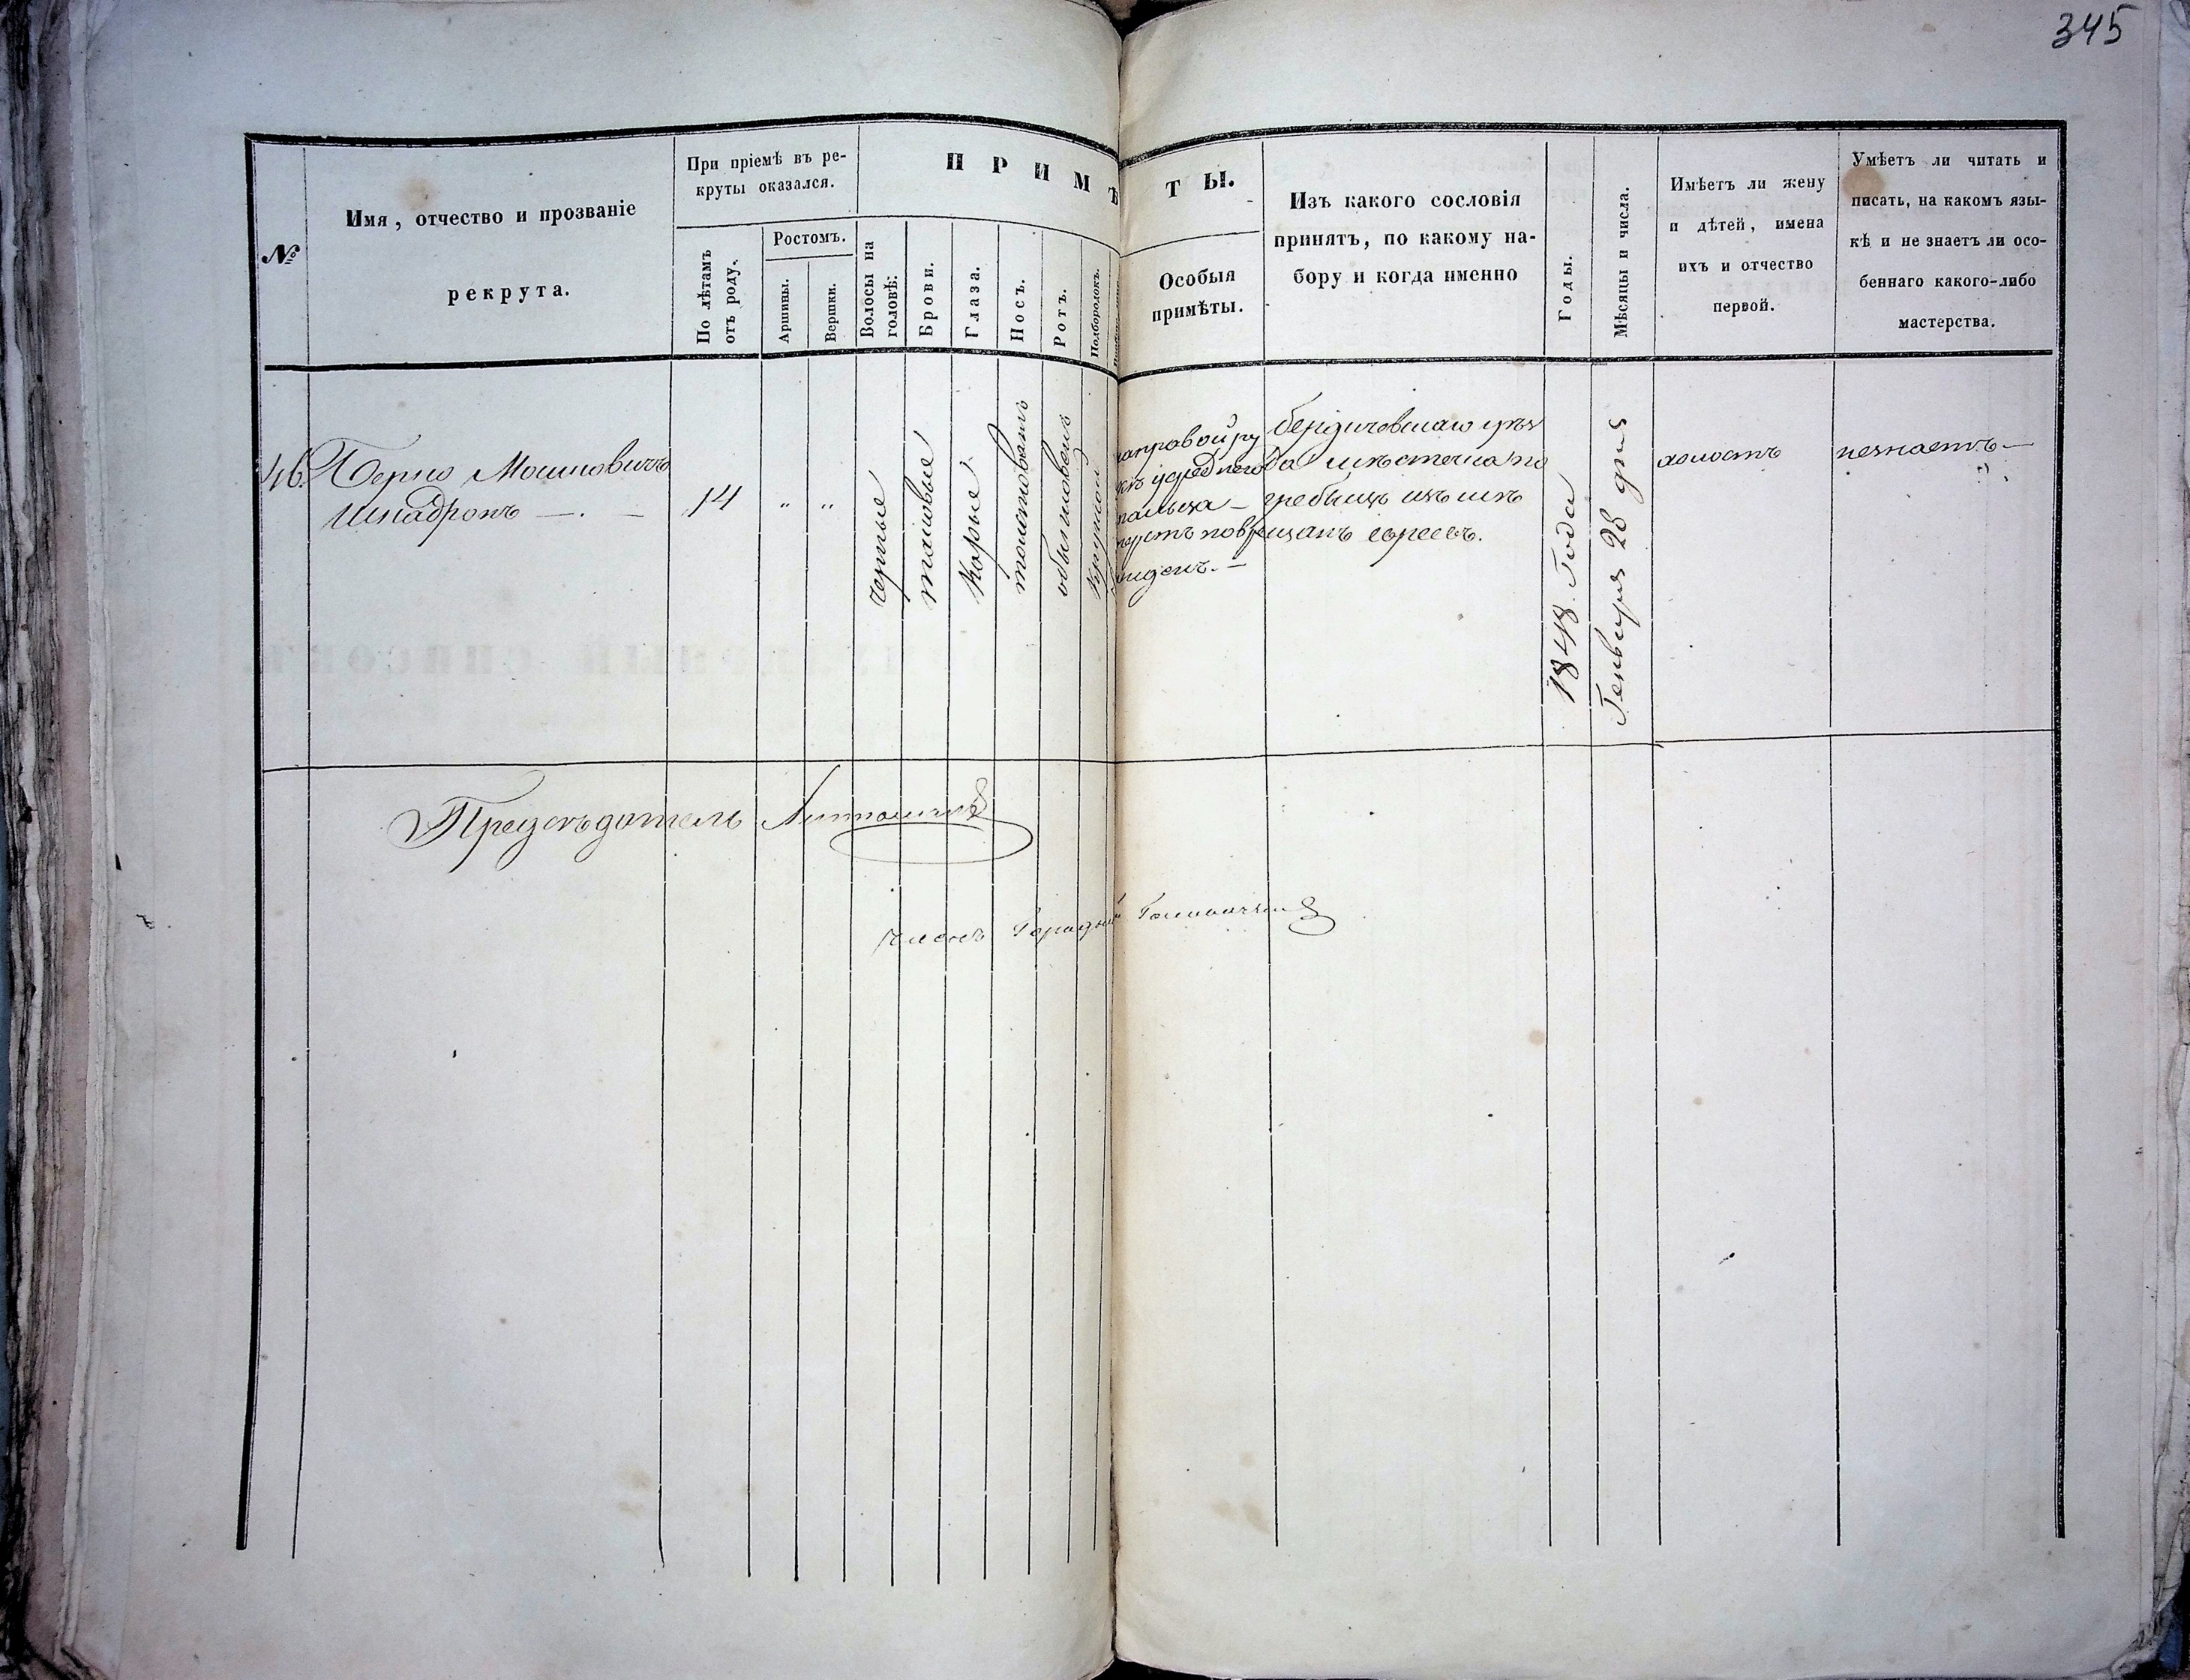 345
№
Имя, отчество и прозваніе
рекрута.
При пріемѣ въ ре-
круты оказался.
По лѣтамъ
отъ роду.
Ростомъ.
Аршины.
Вершки.
ПРИМѢТЫ.
Волосы на
головѣ:
Брови.
Глаза.
Носъ.
Ротъ.
Подбородокъ.
Особыя
примѣты.
Изъ какого сословія
принятъ, по какому на-
бору и когда именно
Годы.
Мѣсяцы и числа.
Имѣетъ ли жену
и дѣтей, имена
ихъ и отчество
первой.
Умѣетъ ли читать и
писать, на какомъ язы-
кѣ и не знаетъ ли осо-
беннаго какого-либо
мастерства.
46.
Берко Мошковичъ
Шпадронъ —.—
14
"
"
черные
таковые
Карые
толстоватъ
обыкновенъ
круглой
направой ру
кѣ усреднего
пальца —
перстъ повре
жденъ. —
бердичовскаго уѣз
да мѣстечка по
гребищъ изъ мѣ
щанъ евреевъ.
1848 Года
Генваря 28 дня
холостъ
незнаетъ —
Предсѣдатель
Членъ